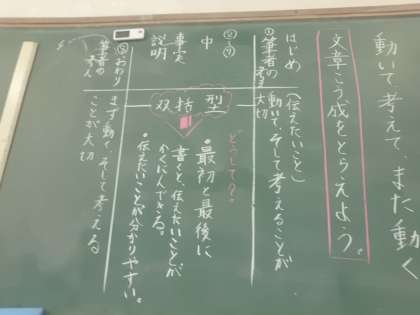 動いて、考えて、また動く
文章こう成をとらえよう。
はじめ
①筆者の考え
(伝えたいこと)
動いて、そして考えることが
大切
中
②〜⑦
事実
説明
双括型
どうして?
・最初と最後に
書くと、伝えたいことが
かくにんできる。
・伝えたいことが分かりやすい。
おわり
⑧
筆者の考え
まず動く、そして考える
ことが大切